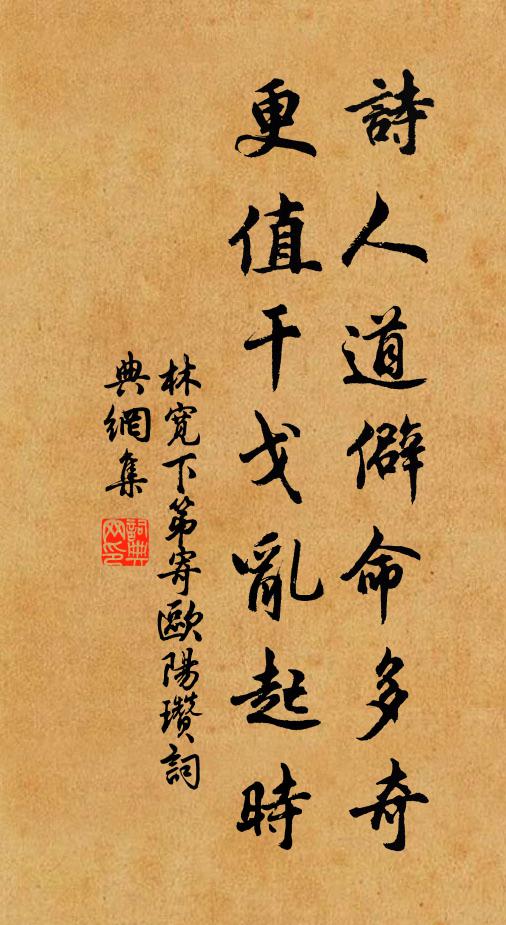 詩人道僻命多奇
更值干戈亂起時
林寬下第寄歐陽瓚詞
典網集
詞典網印